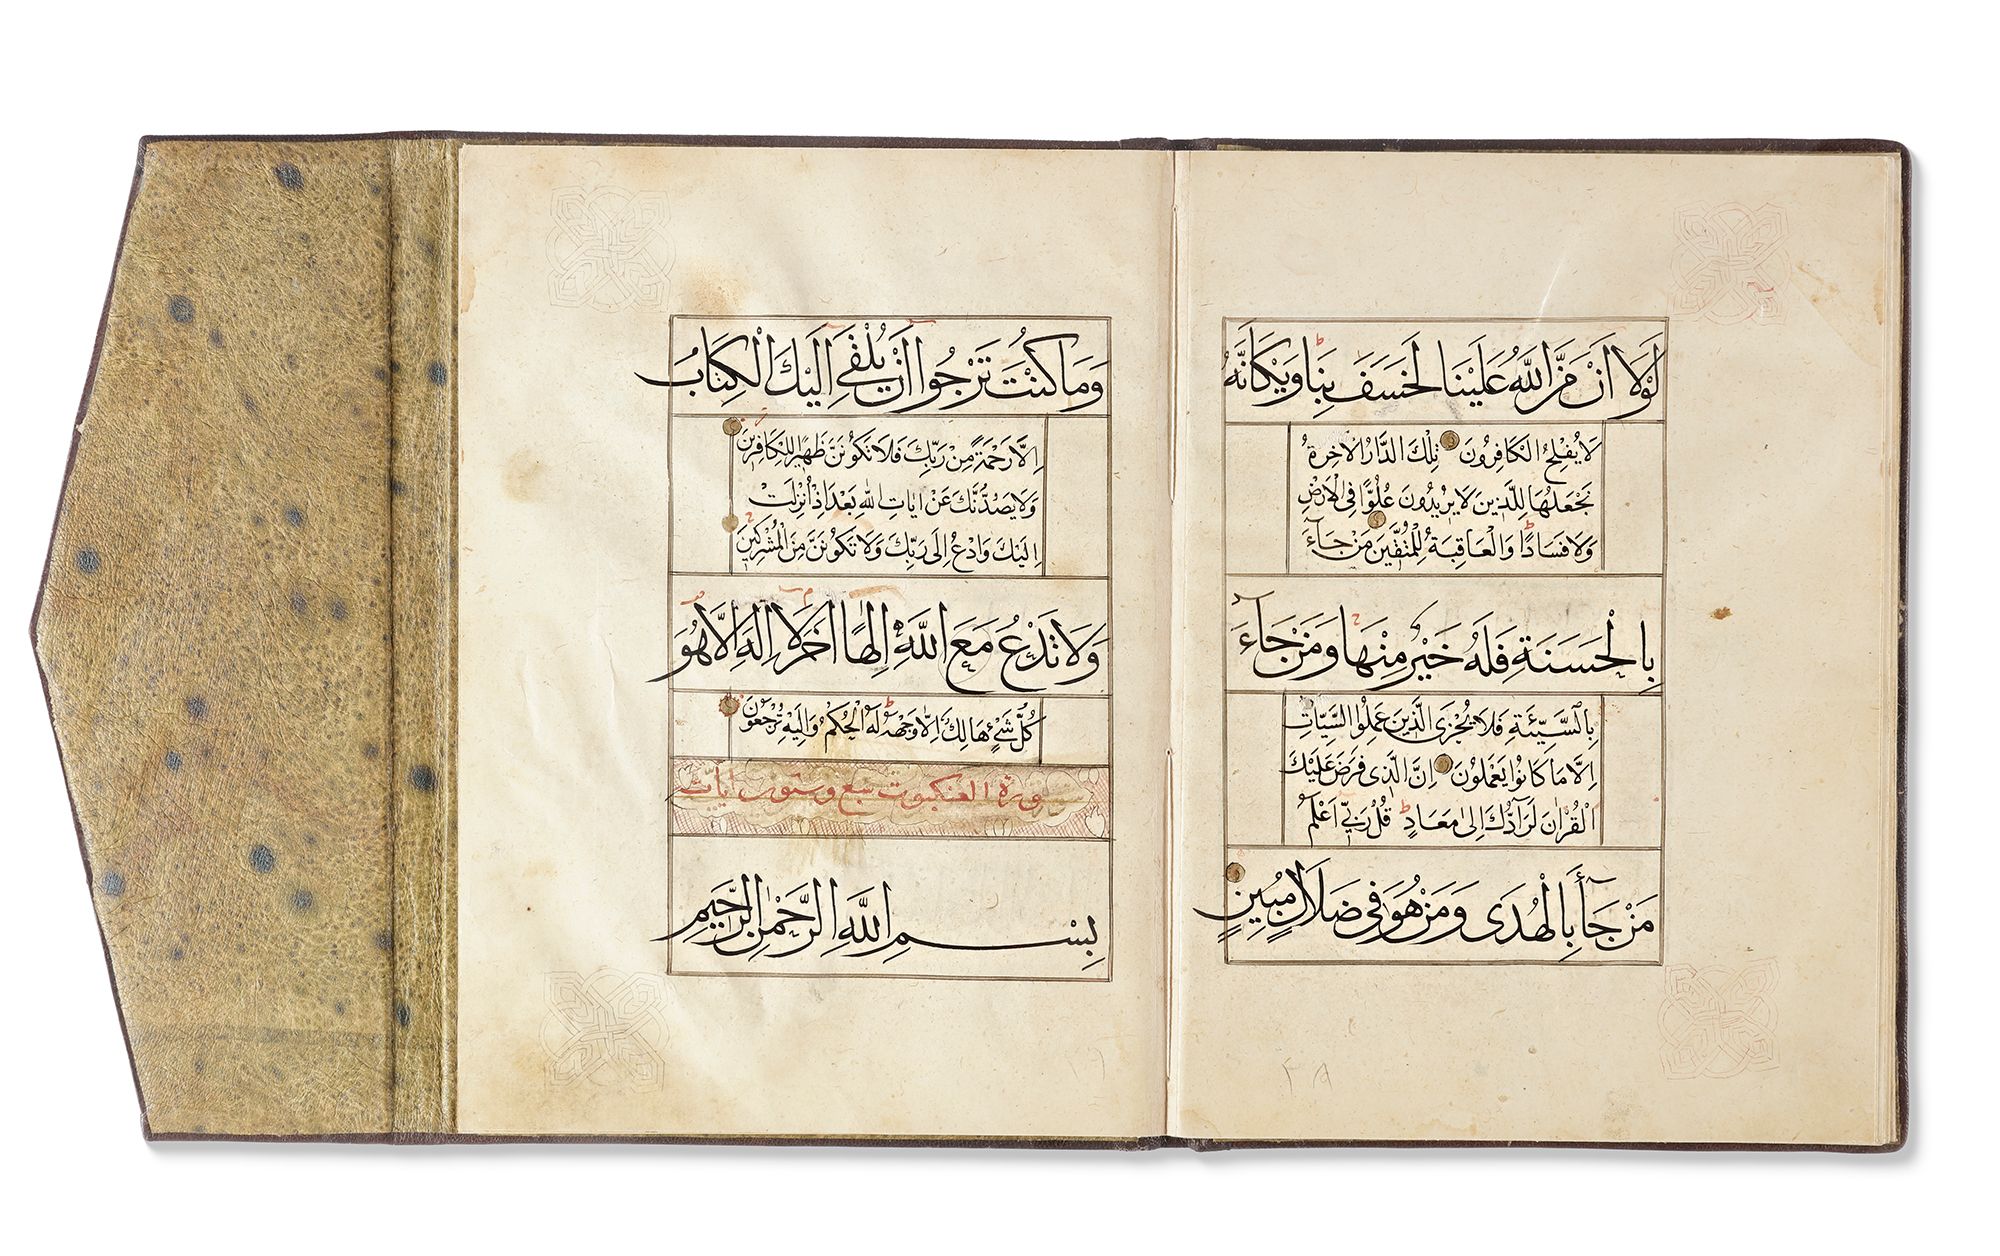 لَوْلَا أَنْ مَنَّ اللَّهُ عَلَيْنَا لَخَسَفَ بِنَا وَيْكَأَنَّهُ
لَا يُفْلِحُ الْكَافِرُونَ تِلْكَ الدَّارُ الْآخِرَةُ
نَجْعَلُهَا لِلَّذِينَ لَا يُرِيدُونَ عُلُوًّا فِي الْأَرْضِ
وَلَا فَسَادًا وَالْعَاقِبَةُ لِلْمُتَّقِينَ مَنْ جَاءَ
بِالْحَسَنَةِ فَلَهُ خَيْرٌ مِنْهَا وَمَنْ جَاءَ
بِالسَّيِّئَةِ فَلَا يُجْزَى الَّذِينَ عَمِلُوا السَّيِّاتِ
إِلَّا مَا كَانُوا يَعْمَلُونَ إِنَّ الَّذِي فَرَضَ عَلَيْكَ
الْقُرْانَ لَرَادُّكَ إِلَى مَعَادٍ قُلْ رَبِّي أَعْلَمُ
مَنْ جَاءَ بِالْهُدَى وَمَنْ هُوَ فِي ضَلَالٍ مُبِينٍ
٢٨
وَمَا كُنْتَ تَرْجُوا أَنْ يُلْقَى إِلَيْكَ الْكِتَابُ
إِلَّا رَحْمَةً مِنْ رَبِّكَ فَلَا تَكُونَنَّ ظَهِيرًا لِلْكَافِرِينَ
وَلَا يَصُدُّنَّكَ عَنْ ايَاتِ اللَّهِ بَعْدَ إِذْ أُنْزِلَتْ
إِلَيْكَ وَادْعُ إِلَى رَبِّكَ وَلَا تَكُونَنَّ مِنَ الْمُشْرِكِينَ
وَلَا تَدْعُ مَعَ اللَّهِ إِلَهًا اخَرَ لَا إِلَهَ إِلَّا هُوَ
كُلُّ شَيْءٍ هَالِكٌ إِلَّا وَجْهَهُ لَهُ الْحُكْمُ وَإِلَيْهِ تُرْجَعُونَ
سورة العنكبوت سبع وستون ايات
بِسْمِ اللَّهِ الرَّحْمَنِ الرَّحِيمِ